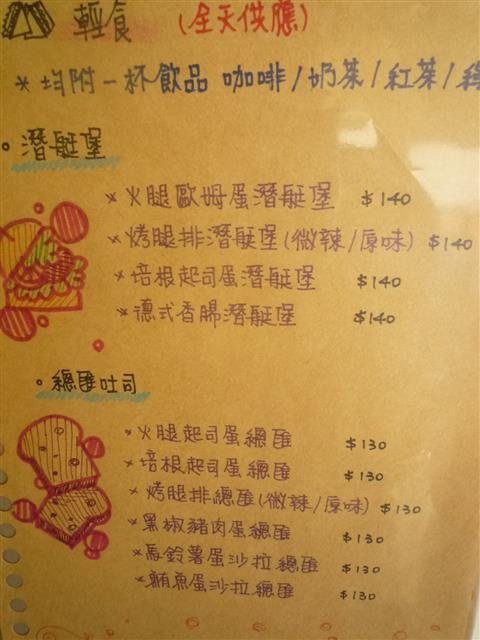 輕食 (全天供應)
* 均附一杯飲品 咖啡/奶茶/紅茶/綠
。潛艇堡
* 火腿歐姆蛋潛艇堡 $140
* 烤腿排潛艇堡(微辣/原味) $140
* 培根起司蛋潛艇堡 $140
* 德式香腸潛艇堡 $140
。總匯吐司
* 火腿起司蛋總匯 $130
* 培根起司蛋總匯 $130
* 烤腿排總匯(微辣/原味) $130
* 黑椒豬肉蛋總匯 $130
* 馬鈴薯蛋沙拉總匯 $130
* 鮪魚蛋沙拉總匯 $130